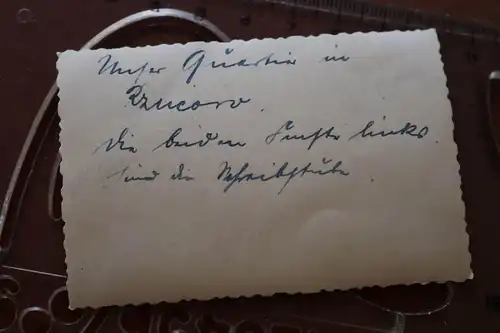 Unser Quartier in
Rzucovo.
Die beiden Fenster links
sind die Schreibstube.